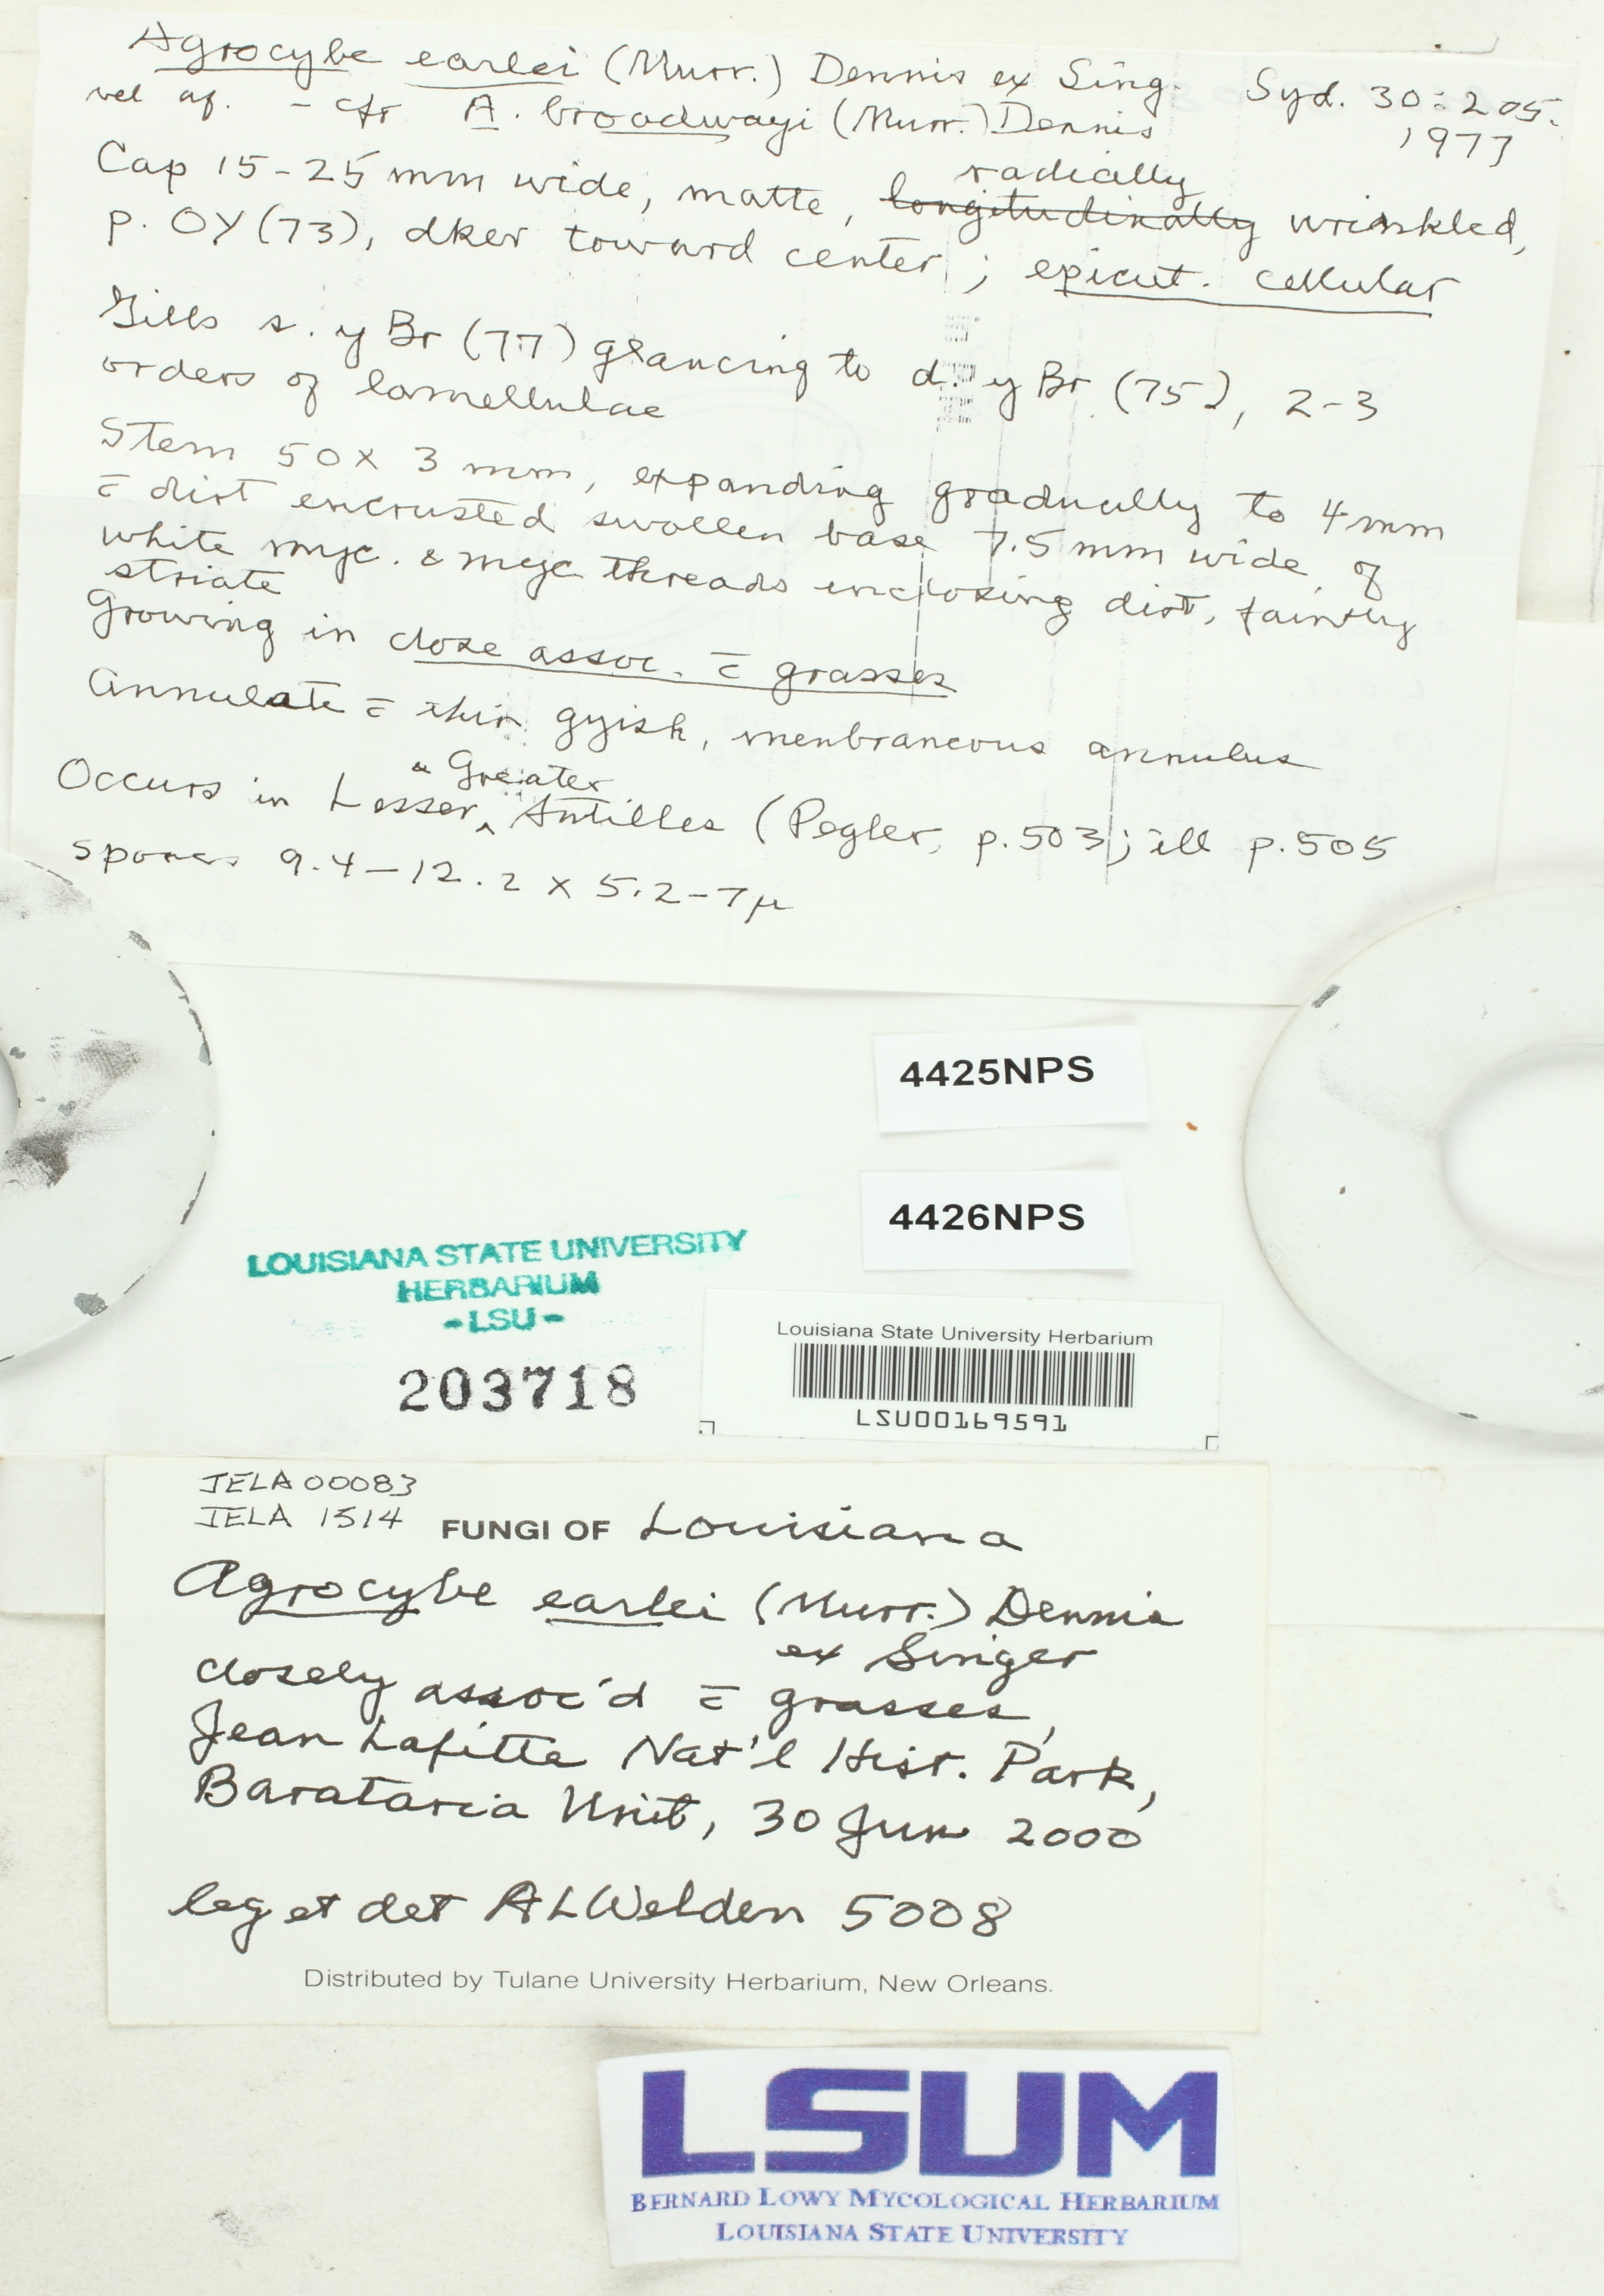 Agrocybe earlei (Murr.) Dennis ex Sing. Syd. 30:205.
vel af. - cfr A. broadwayi (Murr.) Dennis 1977
Cap 15-25 mm wide, matte, longitudinally radically wrinkled,
p. OY (73), dker toward center; epicut. cellular
Gills s. y Br (77) glancing to d. y Br (75), 2-3
orders of lamellulae
Stem 50 x 3 mm, expanding gradually to 4 mm
c̄ dirt encrusted swollen base 7.5 mm wide, of
white myc. & myc threads enclosing dirt, faintly
striate
Growing in close assoc. c̄ grasses
Annulate c̄ thin gyish, menbraneous annulus
Occurs in Lesser & Greater Antilles (Pegler, p.503; ill p.505
spores 9.4-12.2 x 5.2-7µ
4425NPS
4426NPS
LOUISIANA STATE UNIVERSITY
HERBARIUM
-LSU-
203718
Louisiana State University Herbarium
LSU00169591
JELA 00083
JELA 1514
FUNGI OF Louisiana
Agrocybe earlei (Murr.) Dennis
ex Singer
closely assoc'd c̄ grasses,
Jean Lafitte Nat'l Hist. Park,
Barataria Unit, 30 Jun 2000
leg et det ALWelden 5008
Distributed by Tulane University Herbarium, New Orleans.
LSUM
BERNARD LOWY MYCOLOGICAL HERBARIUM
LOUISIANA STATE UNIVERSITY